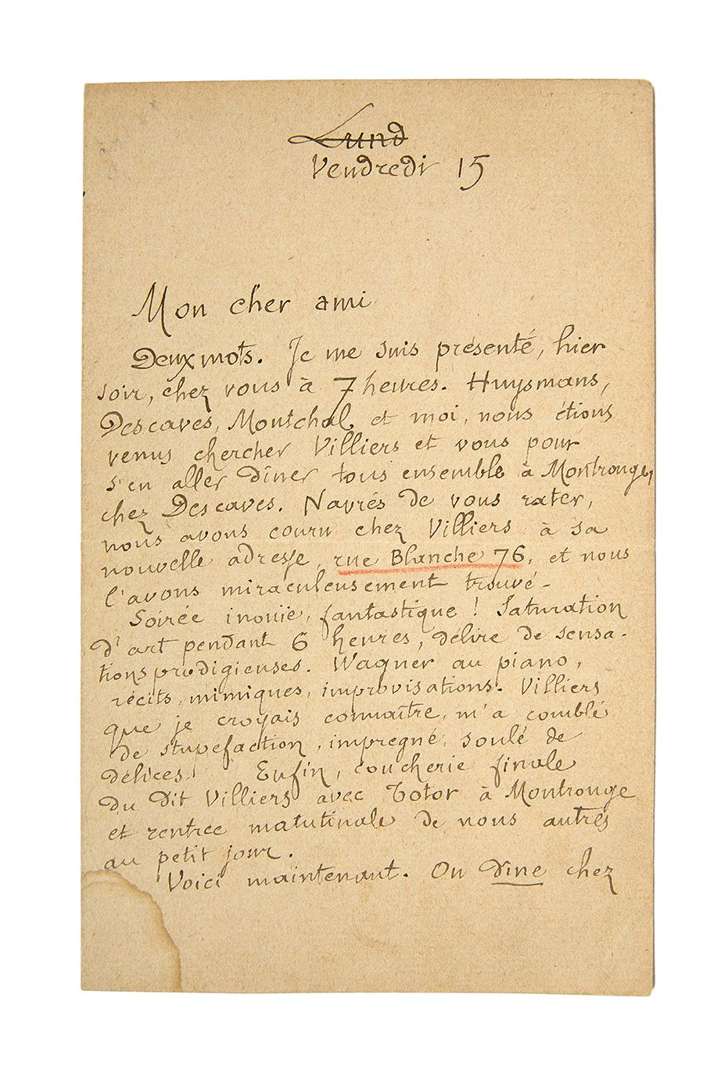 Lund
Vendredi 15
Mon cher ami
Deux mots. Je me suis présenté, hier
soir, chez vous à 7 heures. Huysmans,
Descaves, Montchal et moi, nous étions
venus chercher Villiers et vous pour
s'en aller dîner tous ensemble à Montrouge,
chez Descaves. Navrés de vous rater,
nous avons couru chez Villiers à sa
nouvelle adresse, rue Blanche 76, et nous
l'avons miraculeusement trouvé.
Soirée inouïe, fantastique ! Saturation
d'art pendant 6 heures, délire de sensa-
tions prodigieuses. Wagner au piano,
récits, mimiques, improvisations. Villiers
que je croyais connaître, m'a comblé
de stupefaction, impregné, soulé de
délices ! Enfin, coucherie finale
du dit Villiers avec Totor à Montrouge
et rentrée matutinale de nous autres
au petit jour.
Voici maintenant. On dine chez